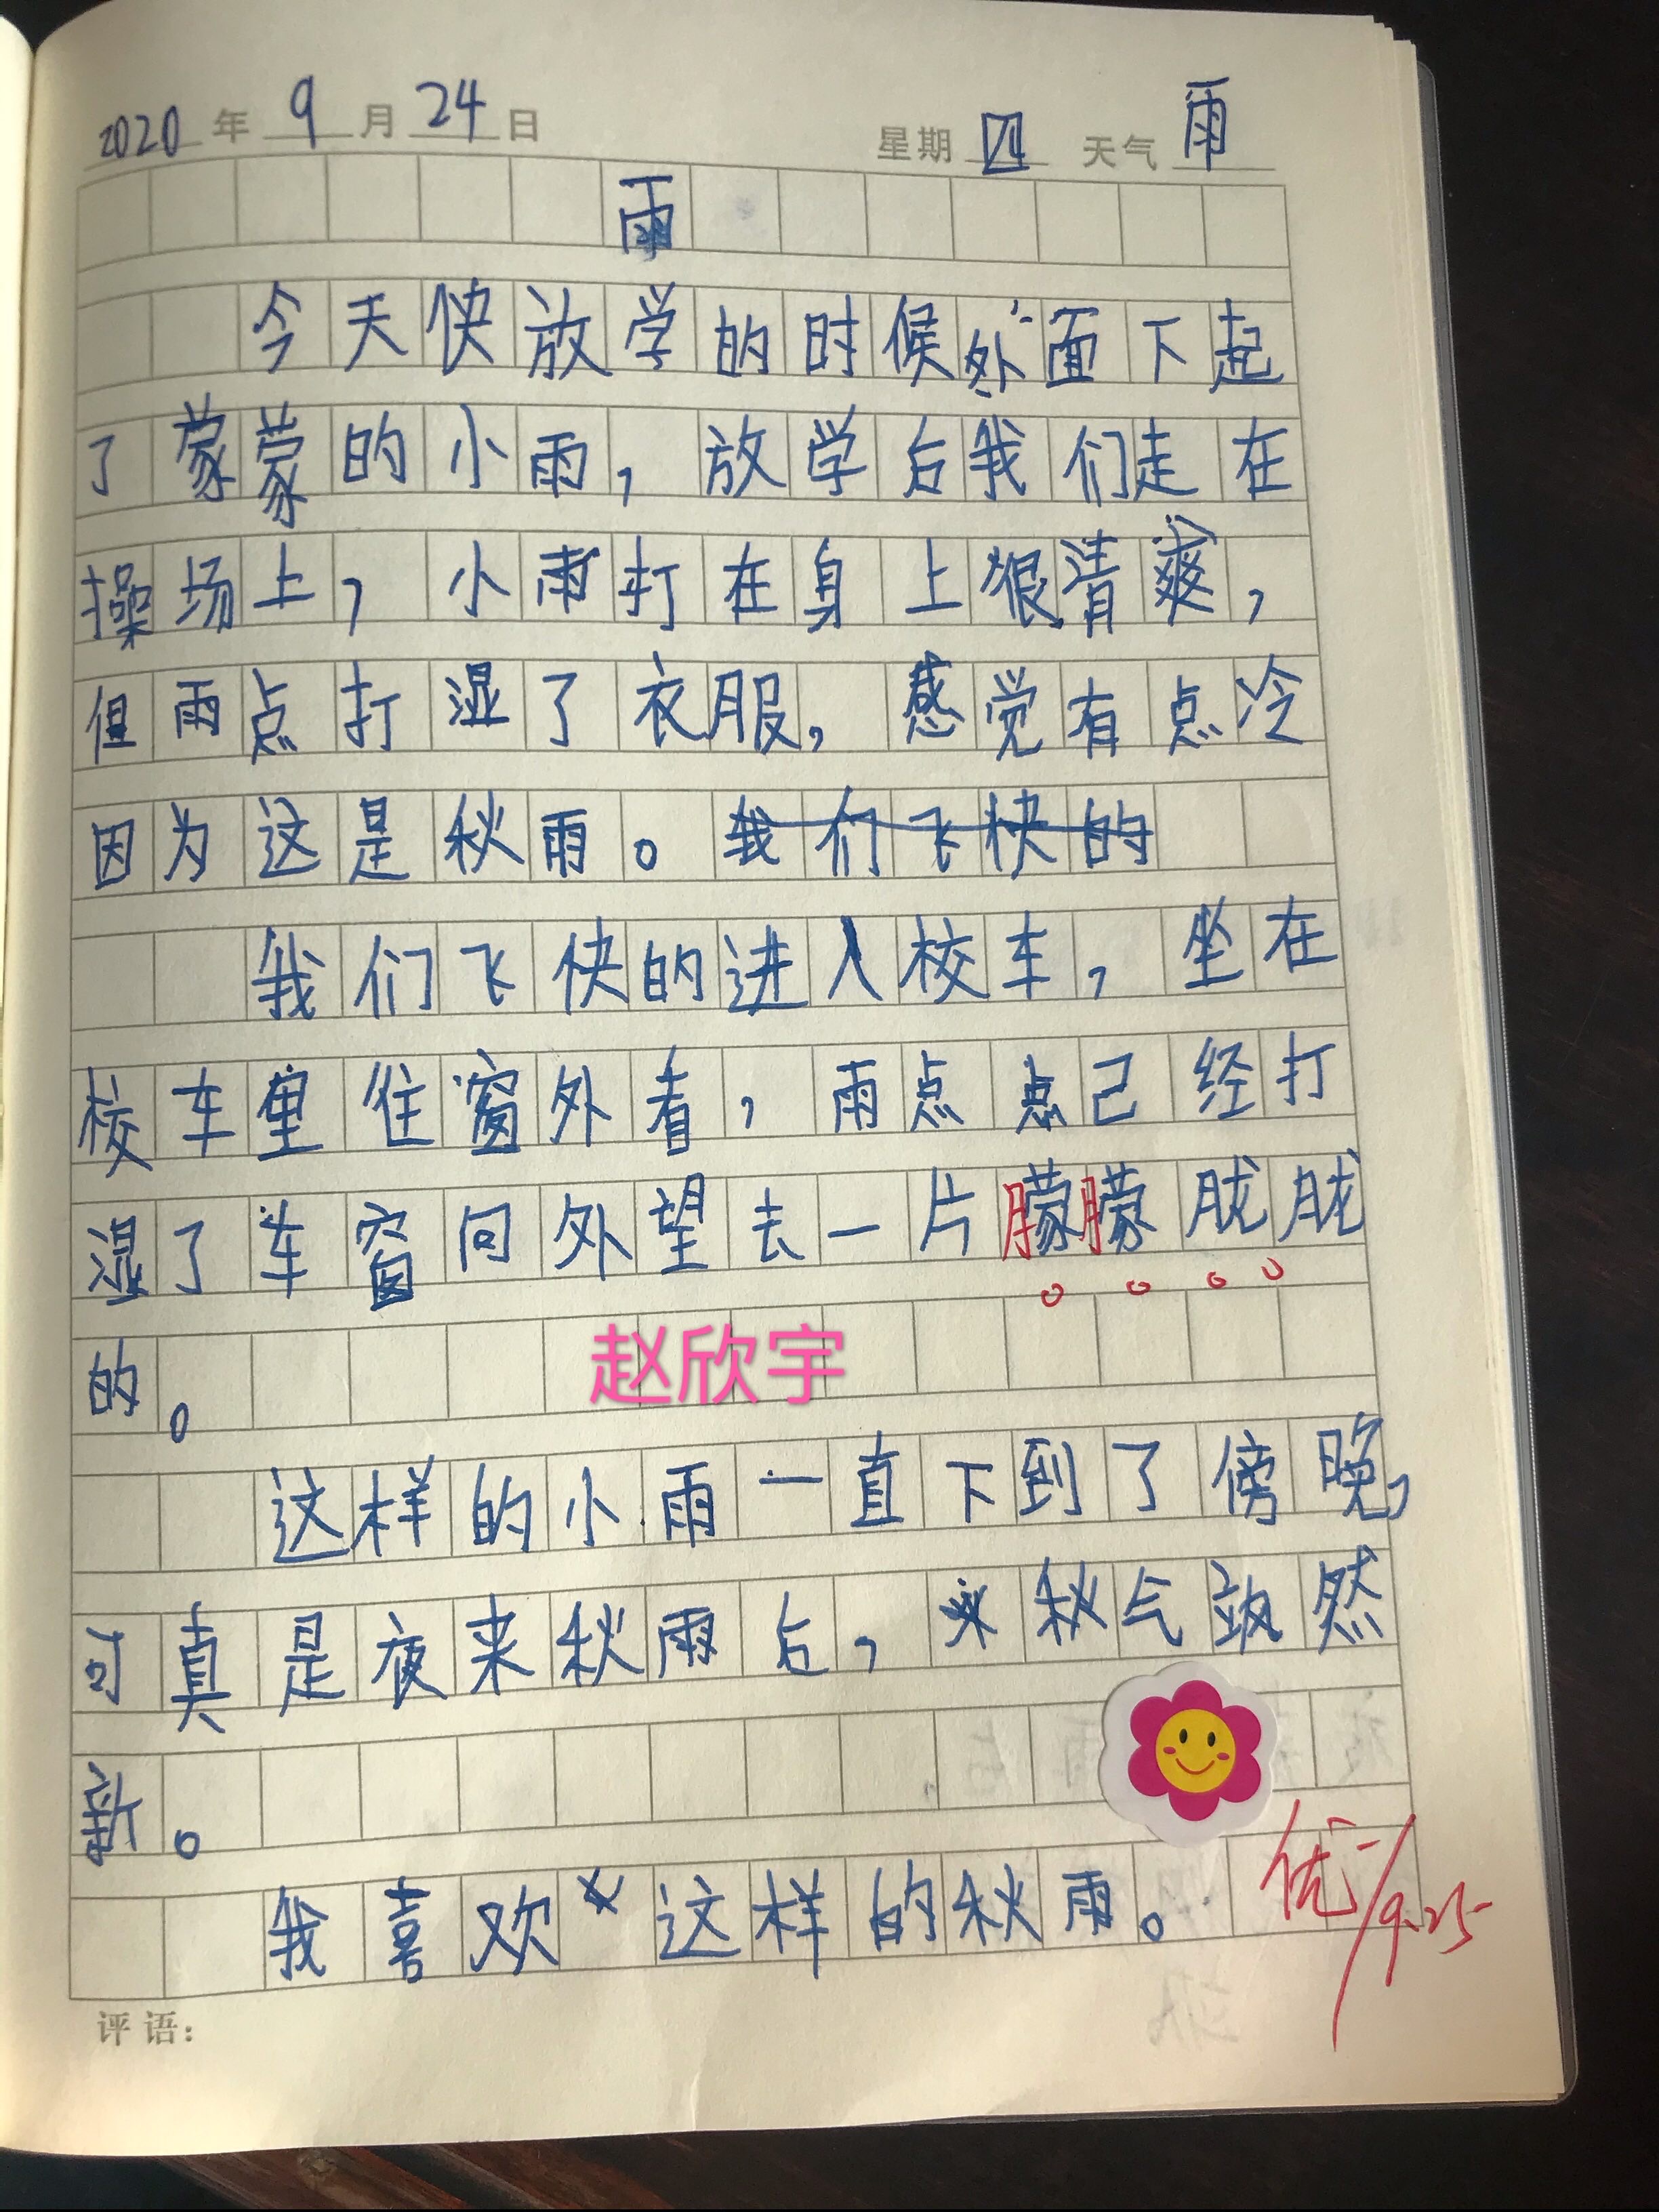 2020年9月24日 星期四 天气雨
雨
今天快放学的时候外面下起
了蒙蒙的小雨，放学后我们走在
操场上，小雨打在身上很清爽，
但雨点打湿了衣服，感觉有点冷
因为这是秋雨。我们飞快的
我们飞快的进入校车，坐在
校车里往窗外看，雨点点己经打
湿了车窗向外望去一片朦朦胧胧
的。
赵欣宇
这样的小雨一直下到了傍晚，
可真是夜来秋雨后，秋气飒然
新。
我喜欢这样的秋雨。
优 9.25
评语：